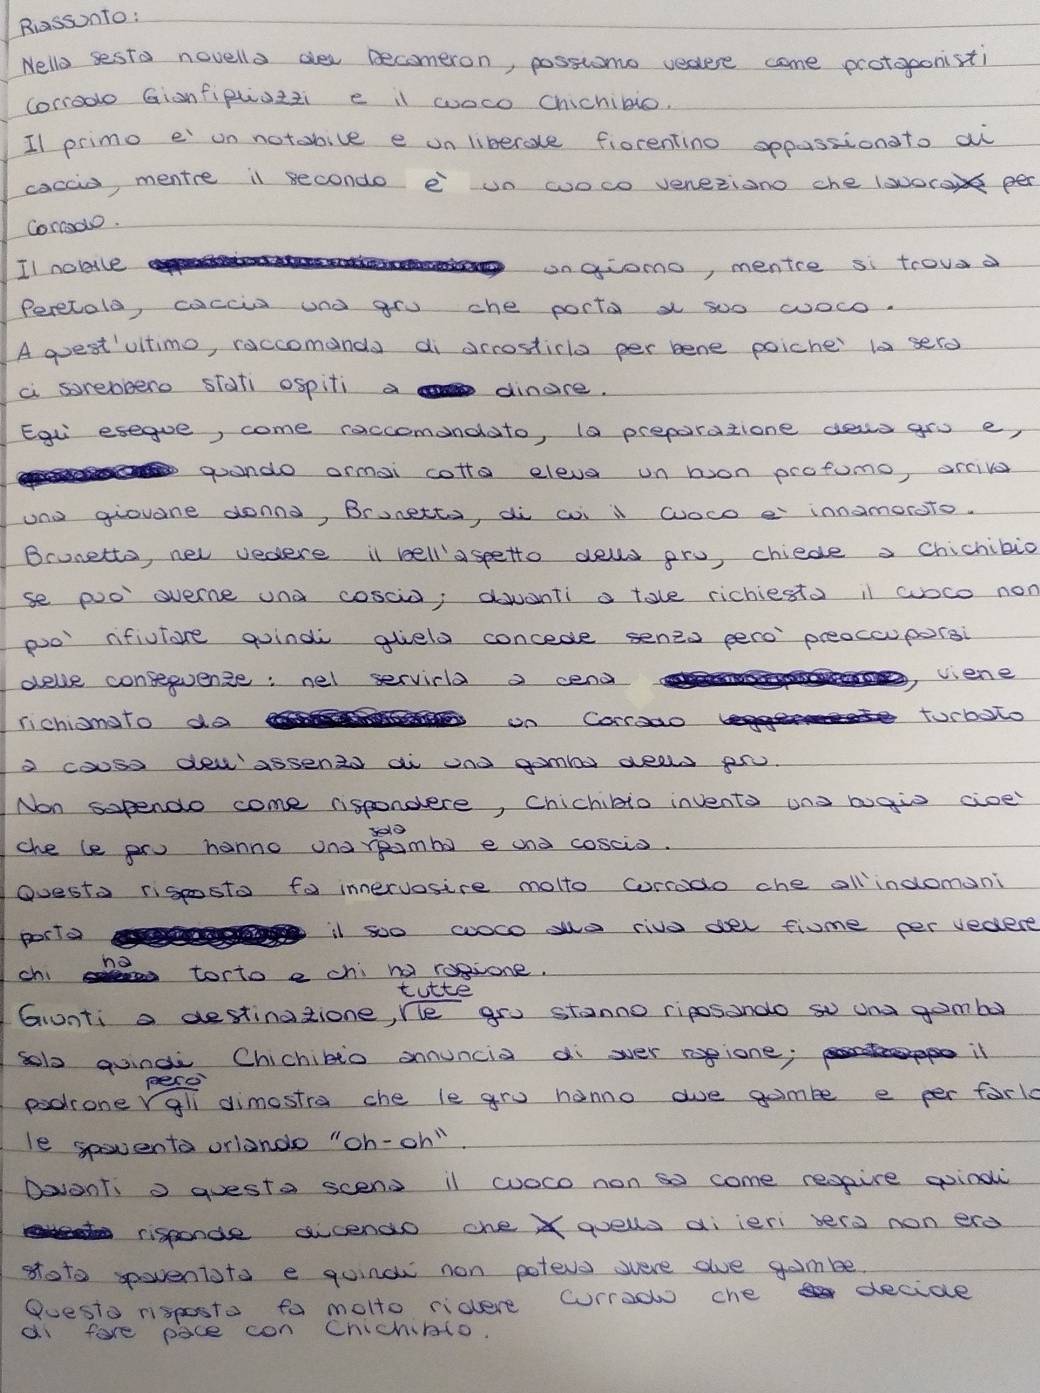 Riassunto:
Nella sesta novella del Decameron, possiamo vedere come protagonisti
Corrado Gianfigliazzi e il cuoco Chichibio.
Il primo e' un notabile e un liberale fiorentino appassionato di
caccia, mentre il secondo è un cuoco veneziano che lavora per
Corrado.
Il nobile un giorno, mentre si trova a
Peretola, caccia una gru che porta al suo cuoco.
A quest'ultimo, raccomanda di arrostirla per bene poiche' la sera
ci sarebbero stati ospiti a dinare.
Egli esegue, come raccomandato, la preparazione della gru e,
quando ormai cotta eleva un buon profumo, arriva
una giovane donna, Brunetta, di cui il cuoco e' innamorato.
Brunetta, nel vedere il bell'aspetto della gru, chiede a Chichibio
se puo' averne una coscia; davanti a tale richiesta il cuoco non
puo' rifiutare quindi gliela concede senza pero' preoccuparsi
delle conseguenze: nel servirla a cena, viene
richiamato da un Corrado turbato
a causa dell'assenza di una gamba della gru.
Non sapendo come rispondere, Chichibio inventa una bugia cioe'
che le gru hanno una sola gamba e una coscia.
Questa risposta fa innervosire molto Currado che all'indomani
porta il suo cuoco alla riva del fiume per vedere
chi ha torto e chi ha ragione.
Giunti a destinazione, tutte le gru stanno riposando su una gamba
sola quindi Chichibio annuncia di aver ragione; il
padrone però gli dimostra che le gru hanno due gambe e per farlo
le spaventa urlando "oh-oh".
Davanti a questa scena il cuoco non sa come reagire quindi
risponde dicendo che quella di ieri sera non era
stata spaventata e quindi non poteva avere due gambe.
Questa risposta fa molto ridere Currado che decide
di fare pace con Chichibio.